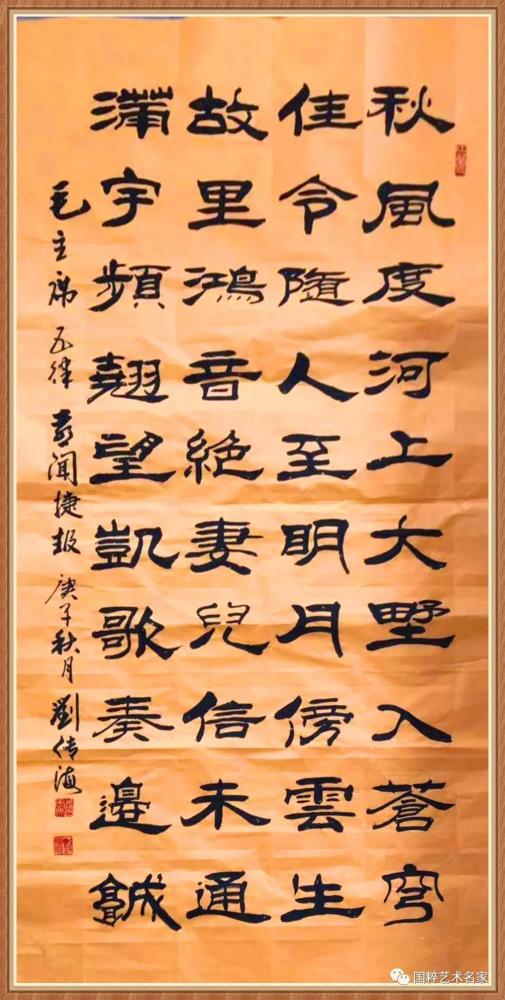 秋風度河上大墅入蒼穹
佳令隨人至明月傍雲生
故里鴻音絕妻兒信未通
滿宇頻翹望凱歌奏邊城
毛主席五律喜聞捷报庚子秋月劉传海
国粹艺术名家